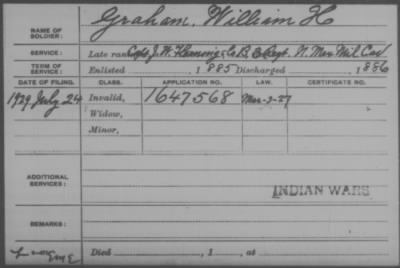 NAME OF SOLDIER: Graham, William H
SERVICE: Late rank, Capt J. W. Co. B, Regt. N. Mex Mil. Cav
TERM OF SERVICE: Enlisted , 1885 Discharged , 1886
DATE OF FILING. CLASS. APPLICATION NO. LAW. CERTIFICATE NO.
1929 July 24 Invalid, 1647568 Mar-3-27
Widow,
Minor,
ADDITIONAL SERVICES:
INDIAN WARS
REMARKS:
Died , 1 , at